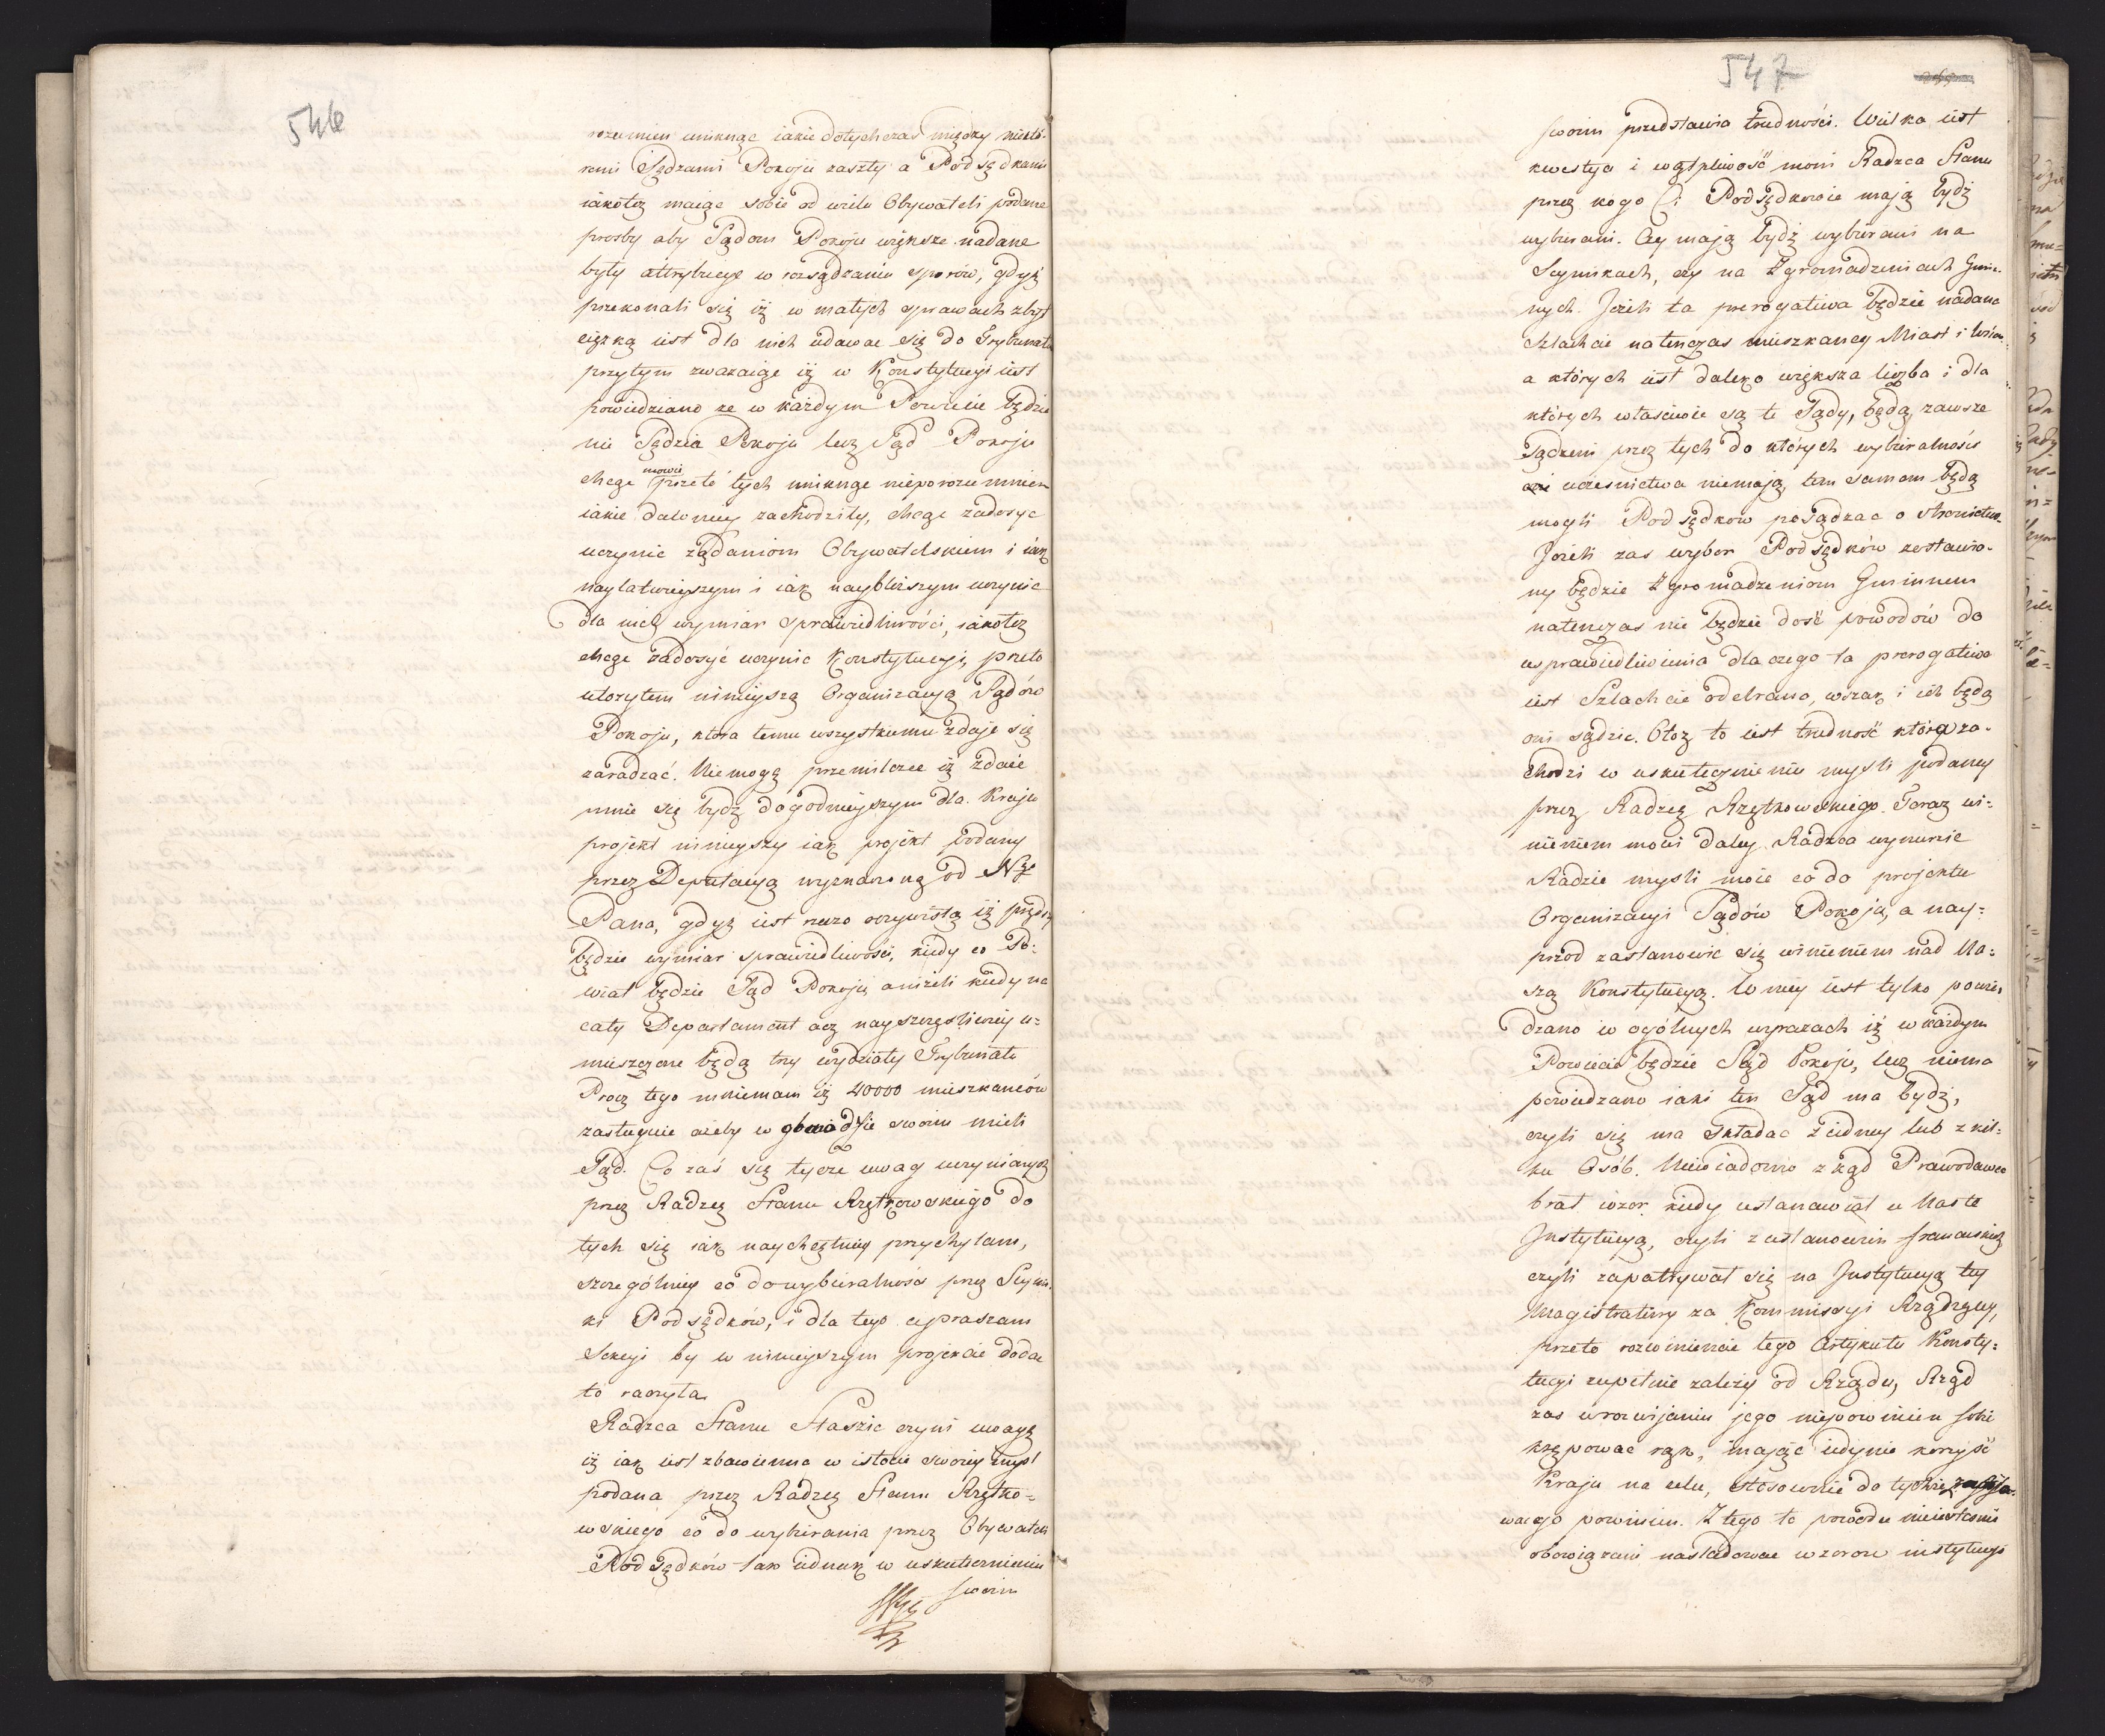 546
rozumien uniknąc iakie dotychczas między niektó-
remi Sędzami Pokoju zaszły a Podsędkami
iakotez maiąc sobie od wielu Obywateli podane
prosby aby Sądom Pokoju większe nadane
były attrybucye w rozsądzaniu sporów, gdyż
przekonali się iż w małych sprawach zbyt
ciężką iest dla nich udawac się do Trybunału
przytym zwazaiąc iż w Konstytucyi iest
powiedziano ze w każdym Powiecie będzie
nie Sędzia Pokoju lecz Sąd Pokoju
chcąc mowie przeto tych uniknąc nieporozumnien
iakie dawniey zachodziły, chcąc zadosyc
uczynic ządaniom Obywatelskiem i iak
naylatwieyszym i iak naybliższym uczynic
dla nich wymiar sprawiedliwości, iakotez
chcąc zadosyć uczynic Konstytucyi, przeto
utorzyłem ninieyszą Organizacyą Sądów
Pokoju, która temu wszystkiemu zdaje się
zaradzać. Niemogę przemilczec iż zdaie
mnie się bydź dogodnieyszym dla Kraju
projekt ninieyszy iak projekt podany
przez Deputacyą wyznaczoną od Nyo
Pana, gdyż iest rzecz oczywistą iż prędszy
będzie wymiar sprawiedliwości, kiedy co Po-
wiat będzie Sąd Pokoju anizeli kiedy na
cały Departament acz nayszczęsliwiey u-
mieszczone będą trzy wydziały Trybunału
Procz tego mniemam iż 40000 mieszkanców
zasługuie azeby w obwodzie swoim mieli
Sąd. Co zaś się tycze uwag uczynionych
przez Radzcę Stanu Rzętkowskiego do
tych się iak naychętniey przychylam,
szczególniey co do wybieralności przez Seymi-
ki Podsędków, i dla tego upraszam
Sekcyi by w ninieyszym projekcie dodac
to raczyła.
Radzca Stanu Staszic czyni uwagę
iż iak iest zbawienna w istocie swoiey mysl
podana przez Radzcę Stanu Rzętko-
wskiego co do wybierania przez Obywateli
Podsędków tak iednak w uskutecznieniu
swoim
547
swoim przedstawia trudności. Wielka iest
kwestya i wątpliwość mowi Radzca Stanu
przez kogo Ci Podsędkowie mają bydź
wybierani. Czy mają bydź wybierani na
Seymikach, czy na Zgromadzeniach Gmin-
nych. Jeżeli ta prerogatiwa będzie nadana
Szlachcie natenczas mieszkancy Miast i Włóscia-
a których iest daleko większa liczba i dla
których własciwie są te Sądy, będą zawsze
Sądzeni przez tych do których wybieralności
uczesnictwa niemają, tem samem będą
mogli Podsędkow posądzac o stronictwo.
Jeżeli zas wybor Podsędków zostawio-
ny będzie Zgromadzeniom Gminnem
natenczas nie będzie dość powodów do
usprawiedliwienia dla czego ta prerogatiwa
iest Szlachcie odebrana, wszak i ich będą
oni sądzic. Otoz to iest trudność która za-
chodzi w uskutecznieniu mysli podaney
przez Radzcę Rzętkowskiego. Teraz wi-
nienem mowi daley Radzca wynurzic
Radzie mysli moie co do projektu
Organizacyi Sądów Pokoju, a nay-
przod zastanowic się winienem nad Na-
szą Konstytucyą. W niey iest tylko powie-
dzano w ogólnych wyrazach iż w każdym
Powiecie będzie Sąd Pokoju, lecz niema
powiedzano iaki ten Sąd ma bydź,
czyli się ma składac z iedney lub z kil-
ku Osób. Niewiadomo z kąd Prawodawca
brał wzor kiedy ustanawiał u Nas te
Instytucyą, czyli z ustanowien francuskich
czyli zapatrywał się na Instytucyą tey
Magistratury za Kommissyi Rządzącey,
przeto rozwinienie tego Artykułu Konsty-
tucyi zupełnie zależy od Rządu, Rząd
zas w rozwijaniu jego niepowinien sobie
krępowac rąk, mając iedynie korzyść
Kraju na celu, stosownie do tychże
powinien. Z tego to powodu nieiestesmy
obowiązani nasladowac wzorow instytucyi